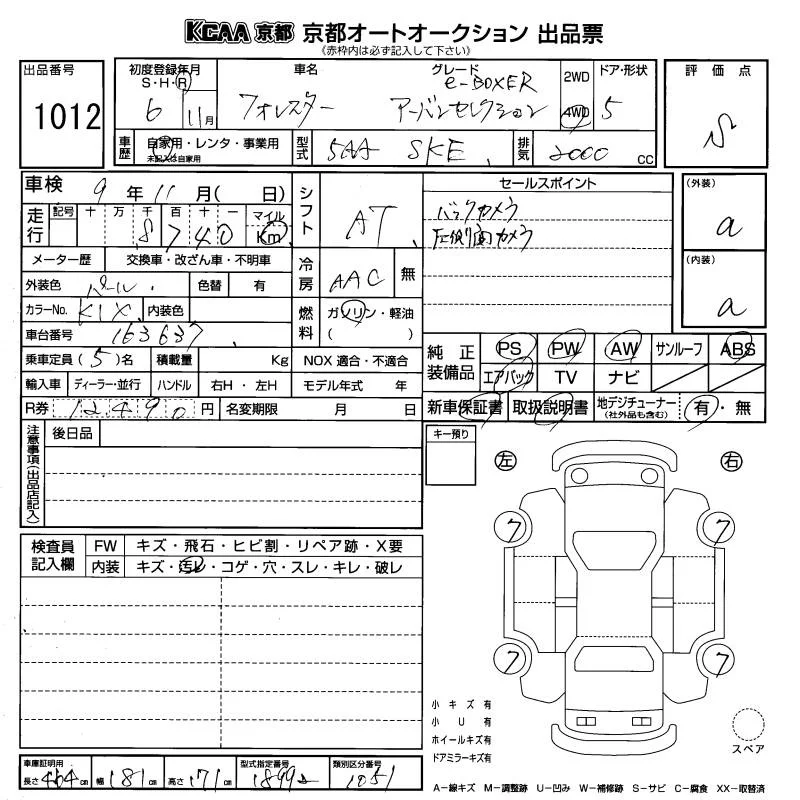 KCAA 京都 京都オートオークション 出品票
(赤枠内は必ず記入して下さい)
出品番号
1012
初度登録年月
S・H・R
6 11月
車名
フォレスター
グレード
e-BOXER
アーバンセレクション
2WD
4WD
ドア・形状
5
評価点
S
車歴
自家用・レンタ・事業用
未記入は自家用
型式
5AA SKE
排気
2000 CC
車検 9年 11月( 日)
走行
記号 十 万 千 百 十 一 マイル
8 7 4 0 Km
メーター歴 交換車・改ざん車・不明車
外装色 パール 色替 有
カラーNo. K1X 内装色
車台番号 163637
乗車定員(5)名 積載量 Kg
輸入車 ディーラー・並行 ハンドル 右H・左H
R券 12490円 名変期限 月 日
シフト AT
冷房 AAC 無
燃料 ガソリン・軽油
( )
NOX 適合・不適合
モデル年式 年
セールスポイント
バックカメラ
左側面カメラ
(外装)
a
(内装)
a
純正装備品
PS PW AW サンルーフ ABS
エアバック TV ナビ
新車保証書 取扱説明書 地デジチューナー(社外品も含む) 有・無
注意事項(出品店記入)
後日品
キー預り
左 右
ワ ワ
ワ ワ
検査員記入欄
FW キズ・飛石・ヒビ割・リペア跡・X要
内装 キズ・汚レ・コゲ・穴・スレ・キレ・破レ
小キズ有
小U有
ホイールキズ有
ドアミラーキズ有
スペア
車庫証明用
長さ 464cm 幅 181cm 高さ 171cm
型式指定番号
18992
類別区分番号
1051
A-線キズ M-調整跡 U-凹み W-補修跡 S-サビ C-腐食 XX-取替済